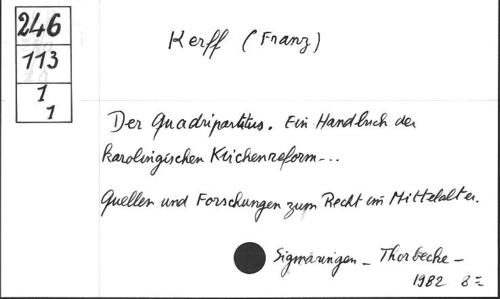 246
113
1
1
Kerff (Franz)
Der Quadripartitus. Ein Handbuch der
Karolingischen Kirchenreform...
Quellen und Forschungen zum Recht im Mittelalter.
Sigmaringen - Thorbecke -
1982 8=